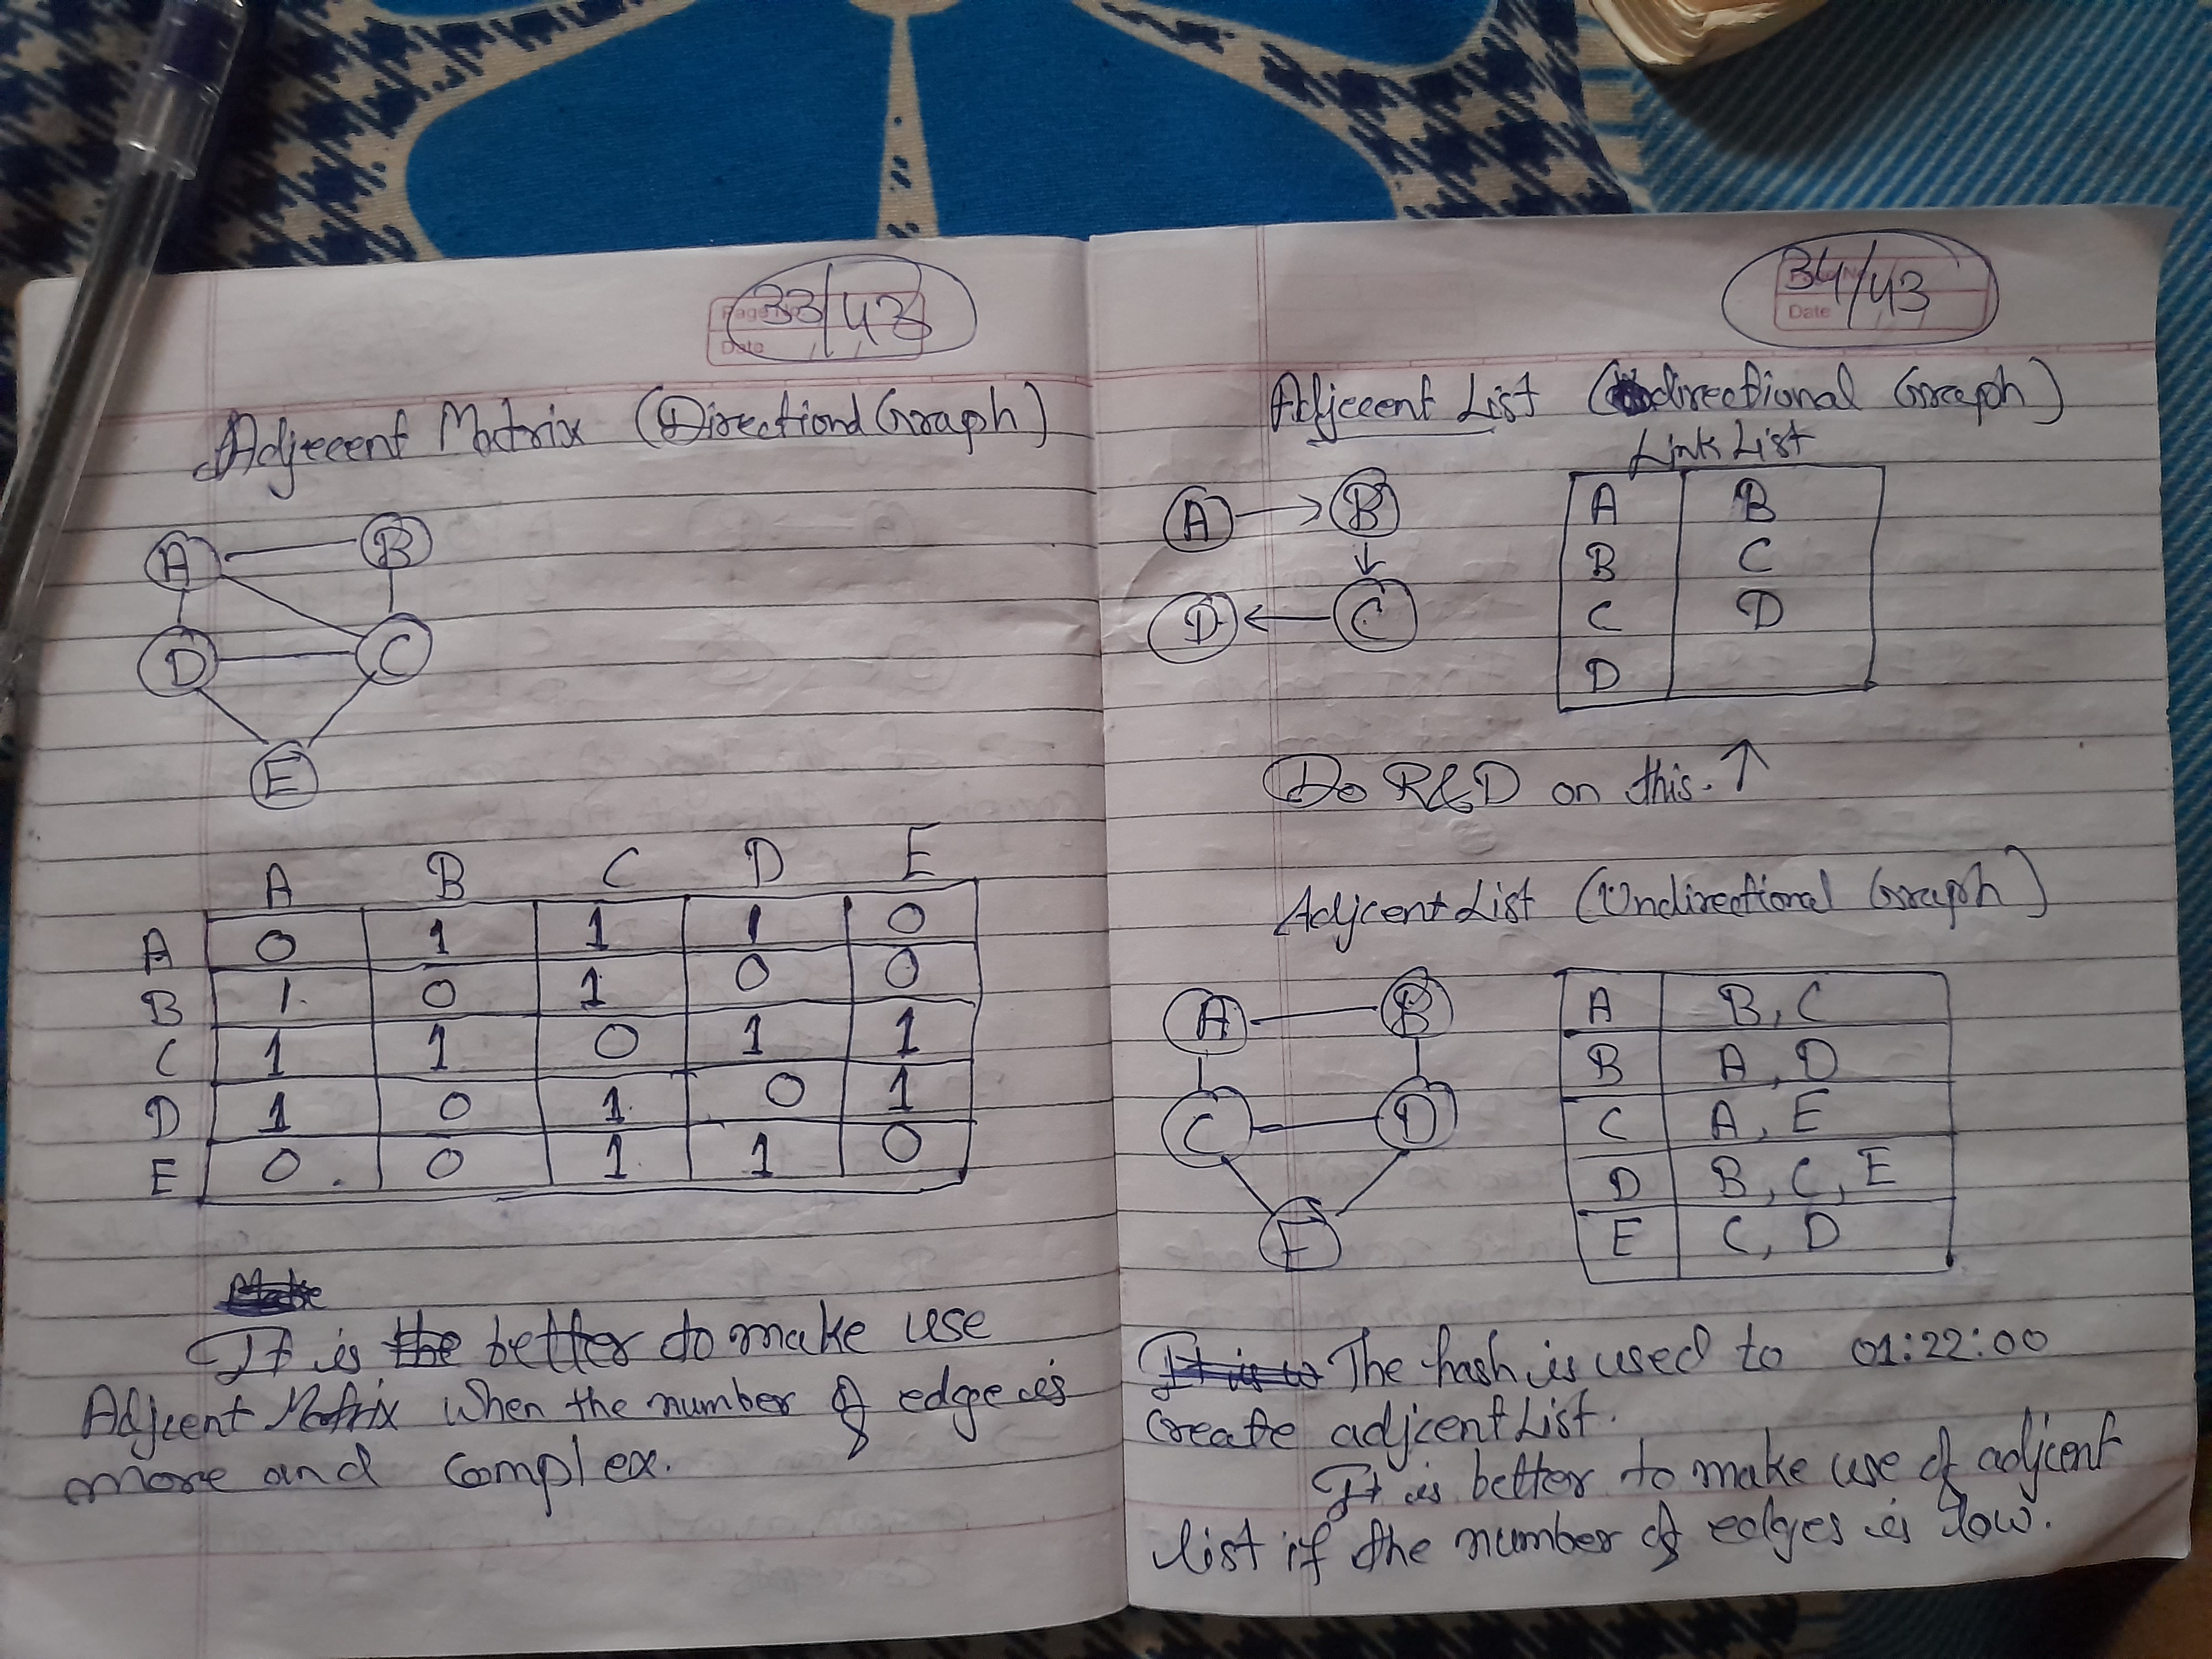 33/43
Adjecent Matrix (Directiond Graph)
A B
D C
E
A B C D E
A 0 1 1 1 0
B 1 0 1 0 0
C 1 1 0 1 1
D 1 0 1 0 1
E 0 0 1 1 0
It is the better to make use
Adjcent Matrix when the number of edge is
more and complex.
34/43
Date
Adjecent List (directional Graph)
Link List
A B
D C
A B
B C
C D
D
Do R&D on this. ↑
Adjcent List (Undirectional Graph)
A B
C D
E
A B, C
B A, D
C A, E
D B, C, E
E C, D
It is The hash is used to 01:22:00
create adjcent List.
It is better to make use of adjcent
list if the number of edges is low.